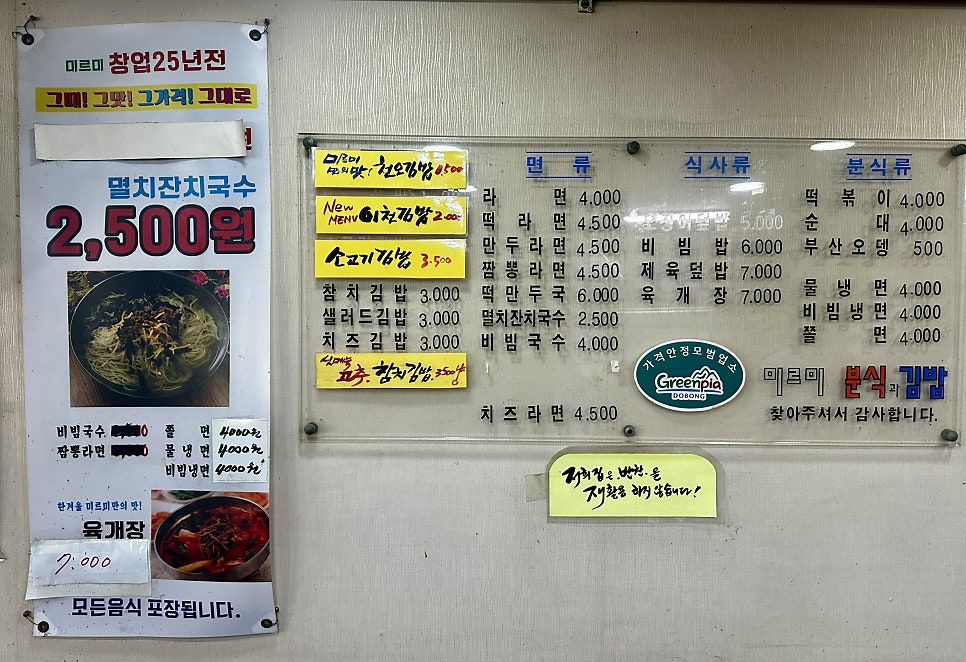 미르미 창업25년전
그때! 그맛! 그가격! 그대로
멸치잔치국수
2,500원
비빔국수 쫄 면 4000원
짬뽕라면 물 냉 면 4000원
비빔냉면 4000원
한겨울 미르미만의 맛!
육개장
7.000
모든음식 포장됩니다.
미르미
맛!
New MENU 김밥
소고기김밥 3.500
참 치 김 밥 3.000
샐러드김밥 3.000
치 즈 김 밥 3.000
고추 참치김밥 3500냥
면 류
라 면 4.000
떡 라 면 4.500
만 두 라 면 4.500
짬 뽕 라 면 4.500
떡 만 두 국 6.000
멸치잔치국수 2.500
비 빔 국 수 4.000
치 즈 라 면 4.500
식 사 류
덮밥 5.000
비 빔 밥 6.000
제 육 덮 밥 7.000
육 개 장 7.000
분 식 류
떡 볶 이 4.000
순 대 4.000
부 산 오 뎅 500
물 냉 면 4.000
비 빔 냉 면 4.000
쫄 면 4.000
가격안정모범업소
Greenpia
DOBONG
미르미 분식과 김밥
찾아주셔서 감사합니다.
저희집은 반찬을
재활용 하지 않습니다!